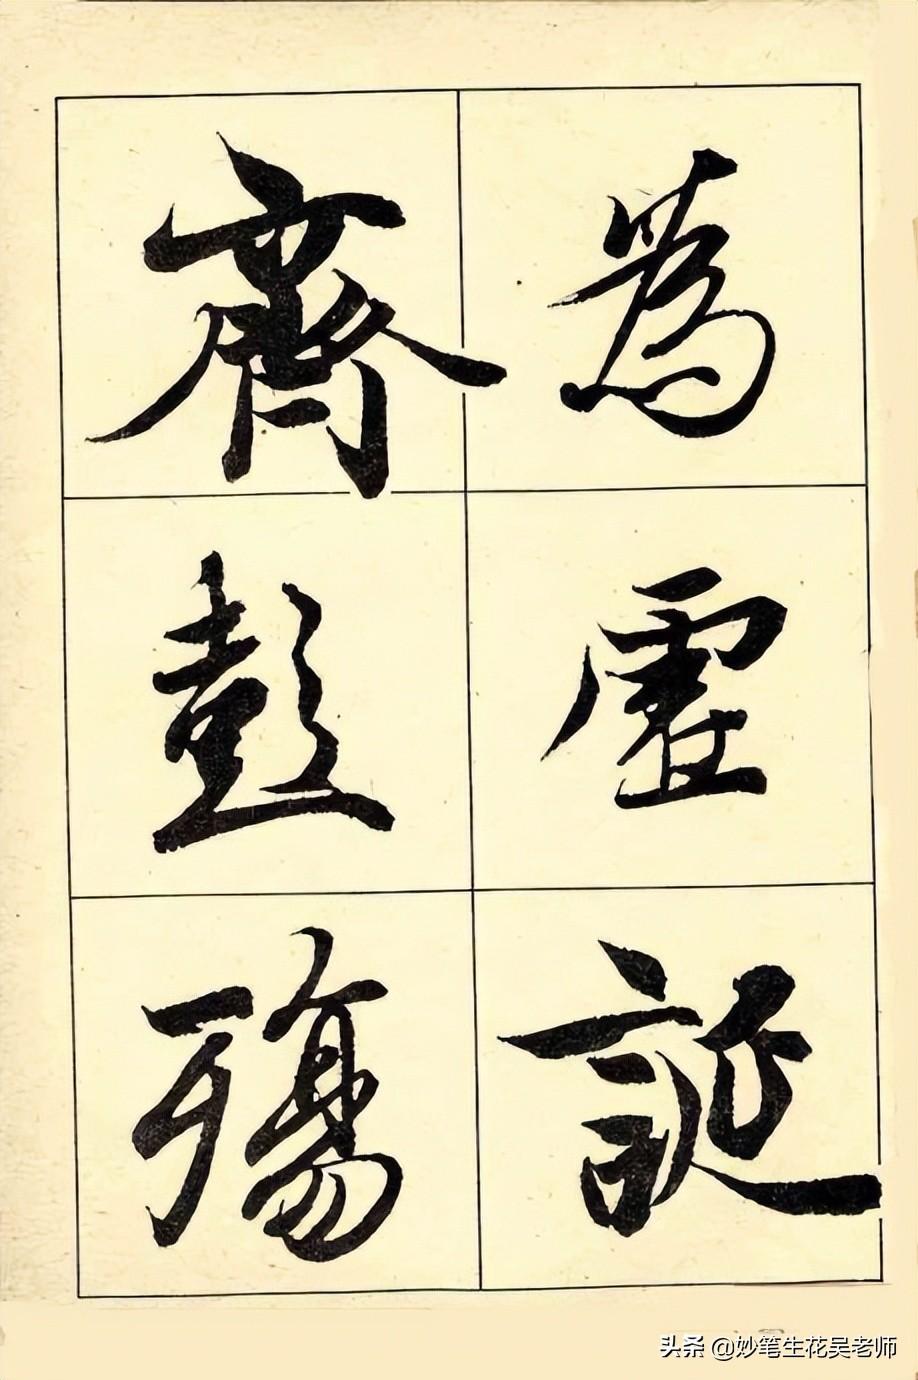 為虛誕
齊彭殤
头条 @妙笔生花吴老师